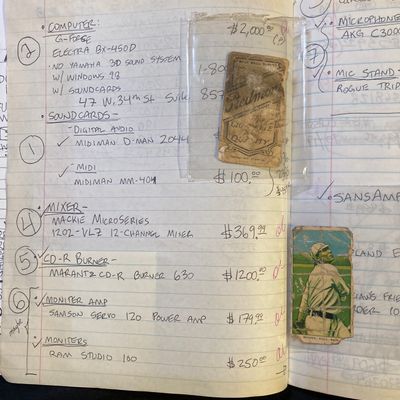 ② • COMPUTER: $2,000.00
G-FORCE
ELECTRA BX-450D
• NO YAMAHA 3D SOUND SYSTEM 1-800
W/ WINDOWS 98
W/ SOUNDCARDS 857
47 W. 34th St. Suite
• SOUNDCARDS -
- DIGITAL AUDIO
① ✓ MIDIMAN D-MAN 2044
- MIDI
✓ MIDIMAN MM-401 $100.00
④ • MIXER -
MACKIE MICROSERIES
1202-VLZ 12-CHANNEL MIXER $369.99
⑤ • CD-R BURNER -
MARANTZ CD-R BURNER 630 $1200.00
⑥ • MONITER AMP
SAMSON SERVO 120 POWER AMP $179.99
maybe
• MONITERS
RAM STUDIO 100 $250.00
Piedmont
• MICROPHONE
AKG C3000
⑦
• MIC STAND -
ROGUE TRIP
• SANSAMP